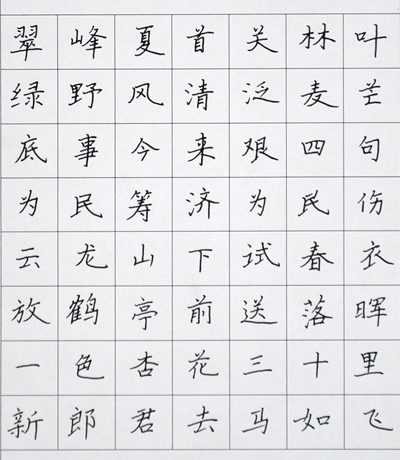 翠峰夏首关林叶
绿野风清泛麦芒
底事今来艰四句
为民筹济为民伤
云龙山下试春衣
放鹤亭前送落晖
一色杏花三十里
新郎君去马如飞